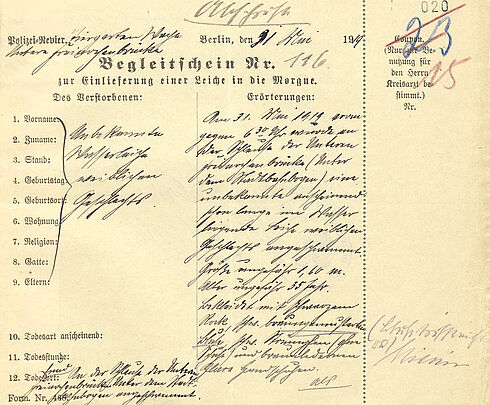 Abschrift
020
Polizei-Revier. Tiergarten Wache
Berlin, den 31 Mai 1919
Untere Freiarchenbrücke
Coupon.
(Nur zur Be-
nutzung für
den Herrn
Kreisarzt be-
stimmt.)
Nr.
15
Begleitschein Nr. 116.
zur Einlieferung einer Leiche in die Morgue.
Des Verstorbenen:
Erörterungen:
1. Vorname:
2. Zuname:
3. Stand:
4. Geburtstag:
5. Geburtsort:
6. Wohnung:
7. Religion:
8. Gatte:
9. Eltern:
Unbekannte
Wasserleiche
weiblichen
Geschlechts
Am 31. Mai 1919
gegen 6 30 Uhr wurde an
der Schleuse der Unteren
Freiarchenbrücke (Unter
dem Stadtbahnbogen) eine
unbekannte anscheinend
schon lange im Wasser
liegende Leiche weiblichen
Geschlechts angeschwemmt.
Größe ungefähr 1,60 m.
Alter ungefähr 35 Jahr.
Bekleidet mit schwarzem
Rock,
und braunledernen
Handschuhen.
10. Todesart anscheinend:
11. Todesstunde:
12. Todesort:
Fund
An der Schleuse der Unteren
Freiarchenbrücke Unter dem Stadt-
bahnbogen angeschwemmt.
Form. Nr.